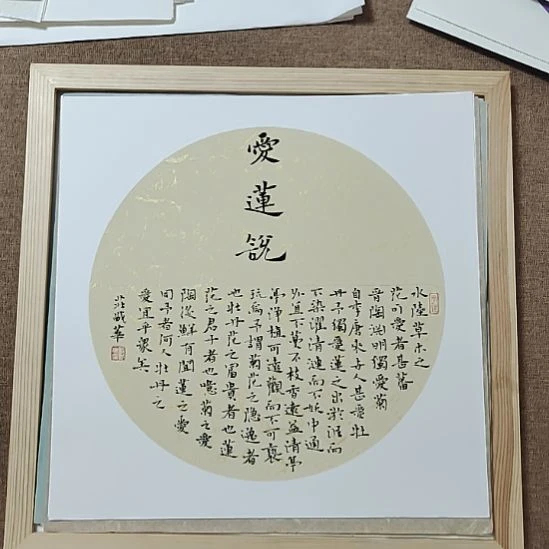 愛蓮說
水陸草木之
花可愛者甚蕃
晉陶渊明獨愛菊
自李唐來世人甚愛牡
丹予獨愛蓮之出淤泥而
不染濯清漣而不妖中通
外直不蔓不枝香遠益清亭
亭淨植可遠觀而不可褻
玩焉予謂菊花之隐逸者
也牡丹花之富貴者也蓮
花之君子者也噫菊之愛
陶後鮮有聞蓮之愛
同予者何人牡丹之
愛宜乎衆矣